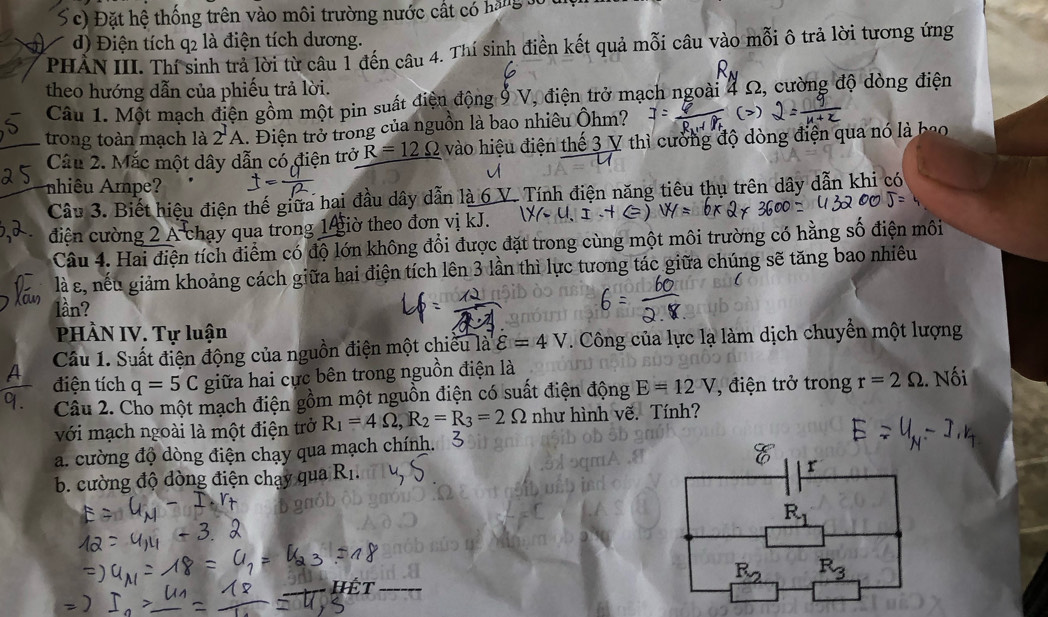 c) Đặt hệ thống trên vào môi trường nước cất có hằng
d) Điện tích q₂ là điện tích dương.
PHẦN III. Thí sinh trả lời từ câu 1 đến câu 4. Thí sinh điền kết quả mỗi câu vào mỗi ô trả lời tương ứng
theo hướng dẫn của phiếu trả lời.
Câu 1. Một mạch điện gồm một pin suất điện động 9 V, điện trở mạch ngoài 4 Ω, cường độ dòng điện
trong toàn mạch là 2 A. Điện trở trong của nguồn là bao nhiêu Ôhm?
Câu 2. Mắc một dây dẫn có điện trở R = 12 Ω vào hiệu điện thế 3 V thì cường độ dòng điện qua nó là bao
nhiêu Ampe?
Câu 3. Biết hiệu điện thế giữa hai đầu dây dẫn là 6 V. Tính điện năng tiêu thụ trên dây dẫn khi có
điện cường 2 A chạy qua trong 1 giờ theo đơn vị kJ.
W = U. I . t (=) W = 6 x 2 x 3600 = 43200 J =
Câu 4. Hai điện tích điểm có độ lớn không đổi được đặt trong cùng một môi trường có hằng số điện môi
là ε, nếu giảm khoảng cách giữa hai điện tích lên 3 lần thì lực tương tác giữa chúng sẽ tăng bao nhiêu
lần?
6 = 60 / 2.8
PHẦN IV. Tự luận
Câu 1. Suất điện động của nguồn điện một chiều là ℰ = 4 V. Công của lực lạ làm dịch chuyển một lượng
điện tích q = 5 C giữa hai cực bên trong nguồn điện là
A/q.
Câu 2. Cho một mạch điện gồm một nguồn điện có suất điện động E = 12 V, điện trở trong r = 2 Ω. Nối
với mạch ngoài là một điện trở R₁ = 4 Ω, R₂ = R₃ = 2 Ω như hình vẽ. Tính?
a. cường độ dòng điện chạy qua mạch chính. 3
b. cường độ dòng điện chạy qua R₁. 4,5
E = U_N - I.r
ℰ r
R₁
R₂ R₃
E = U_N - I.r
12 = U_N - 3. 2
=> U_N = 18 = U₁ = U₂₃ = 18
HẾT